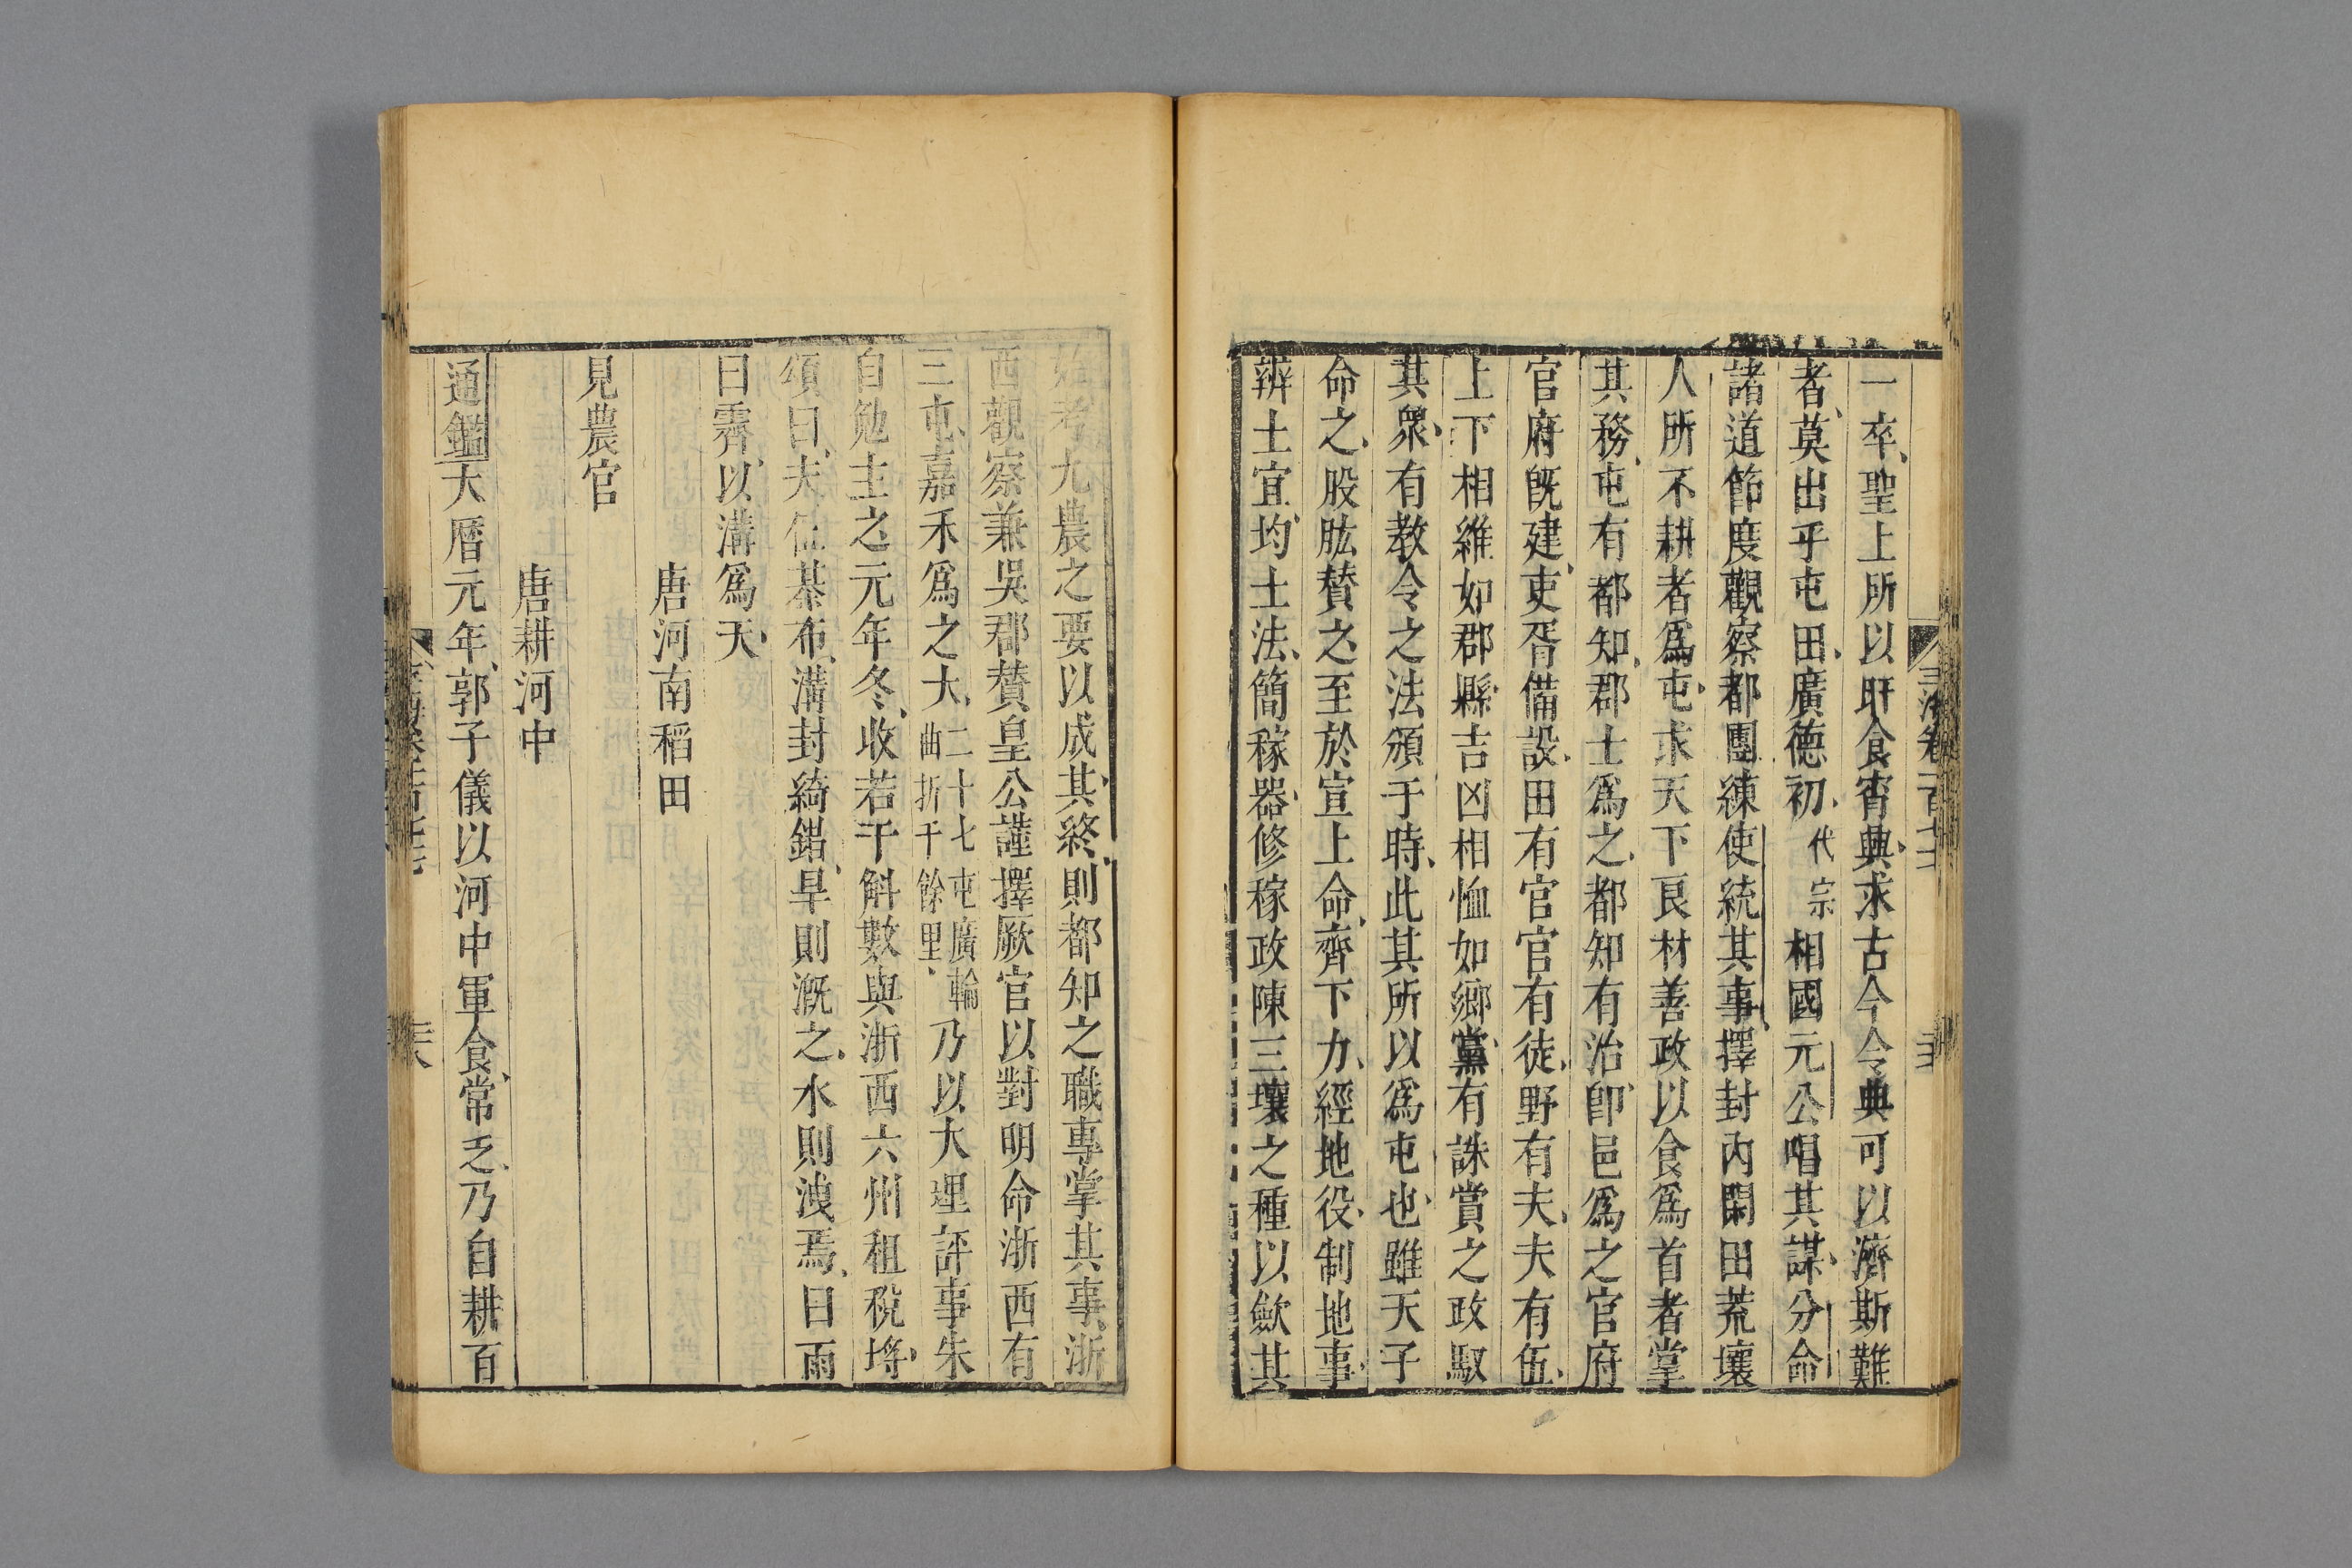 一卒、聖上所以旰食宵興、求古今令典可以濟斯難
者、莫出乎屯田、廣德初、代宗相國元公唱其謀、分命
諸道節度觀察都團練使統其事、擇封內閑田荒壤
人所不耕者爲屯、求天下良材善政以食爲首者掌
其務、屯有都知、郡士爲之、都知有治、卽邑爲之官府
官府旣建、吏胥備設、田有官、官有徒、野有夫、夫有伍、
上下相維如郡縣、吉凶相恤如鄉黨、有誅賞之政馭
其衆、有教令之法頒于時、此其所以爲屯也、雖天子
命之、股肱贊之、至於宣上命、齊下力、經地役、制地事、
辨土宜、均土法、簡稼器、修稼政、陳三壤之種以斂其
始、考九農之要以成其終、則都知之職專掌其事、浙
西觀察兼吳郡贊皇公謹擇厥官以對明命浙西有
三屯、嘉禾爲之大、二十七屯廣輪曲折千餘里、乃以大理評事朱
自勉主之、元年冬、收若干斛、數與浙西六州租稅埒、
頌曰、夫伍棊布、溝封綺錯、旱則溉之、水則洩焉、曰雨
曰霽、以溝爲天、
唐河南稻田
見農官
唐耕河中
通鑑大曆元年、郭子儀以河中軍食常乏、乃自耕百